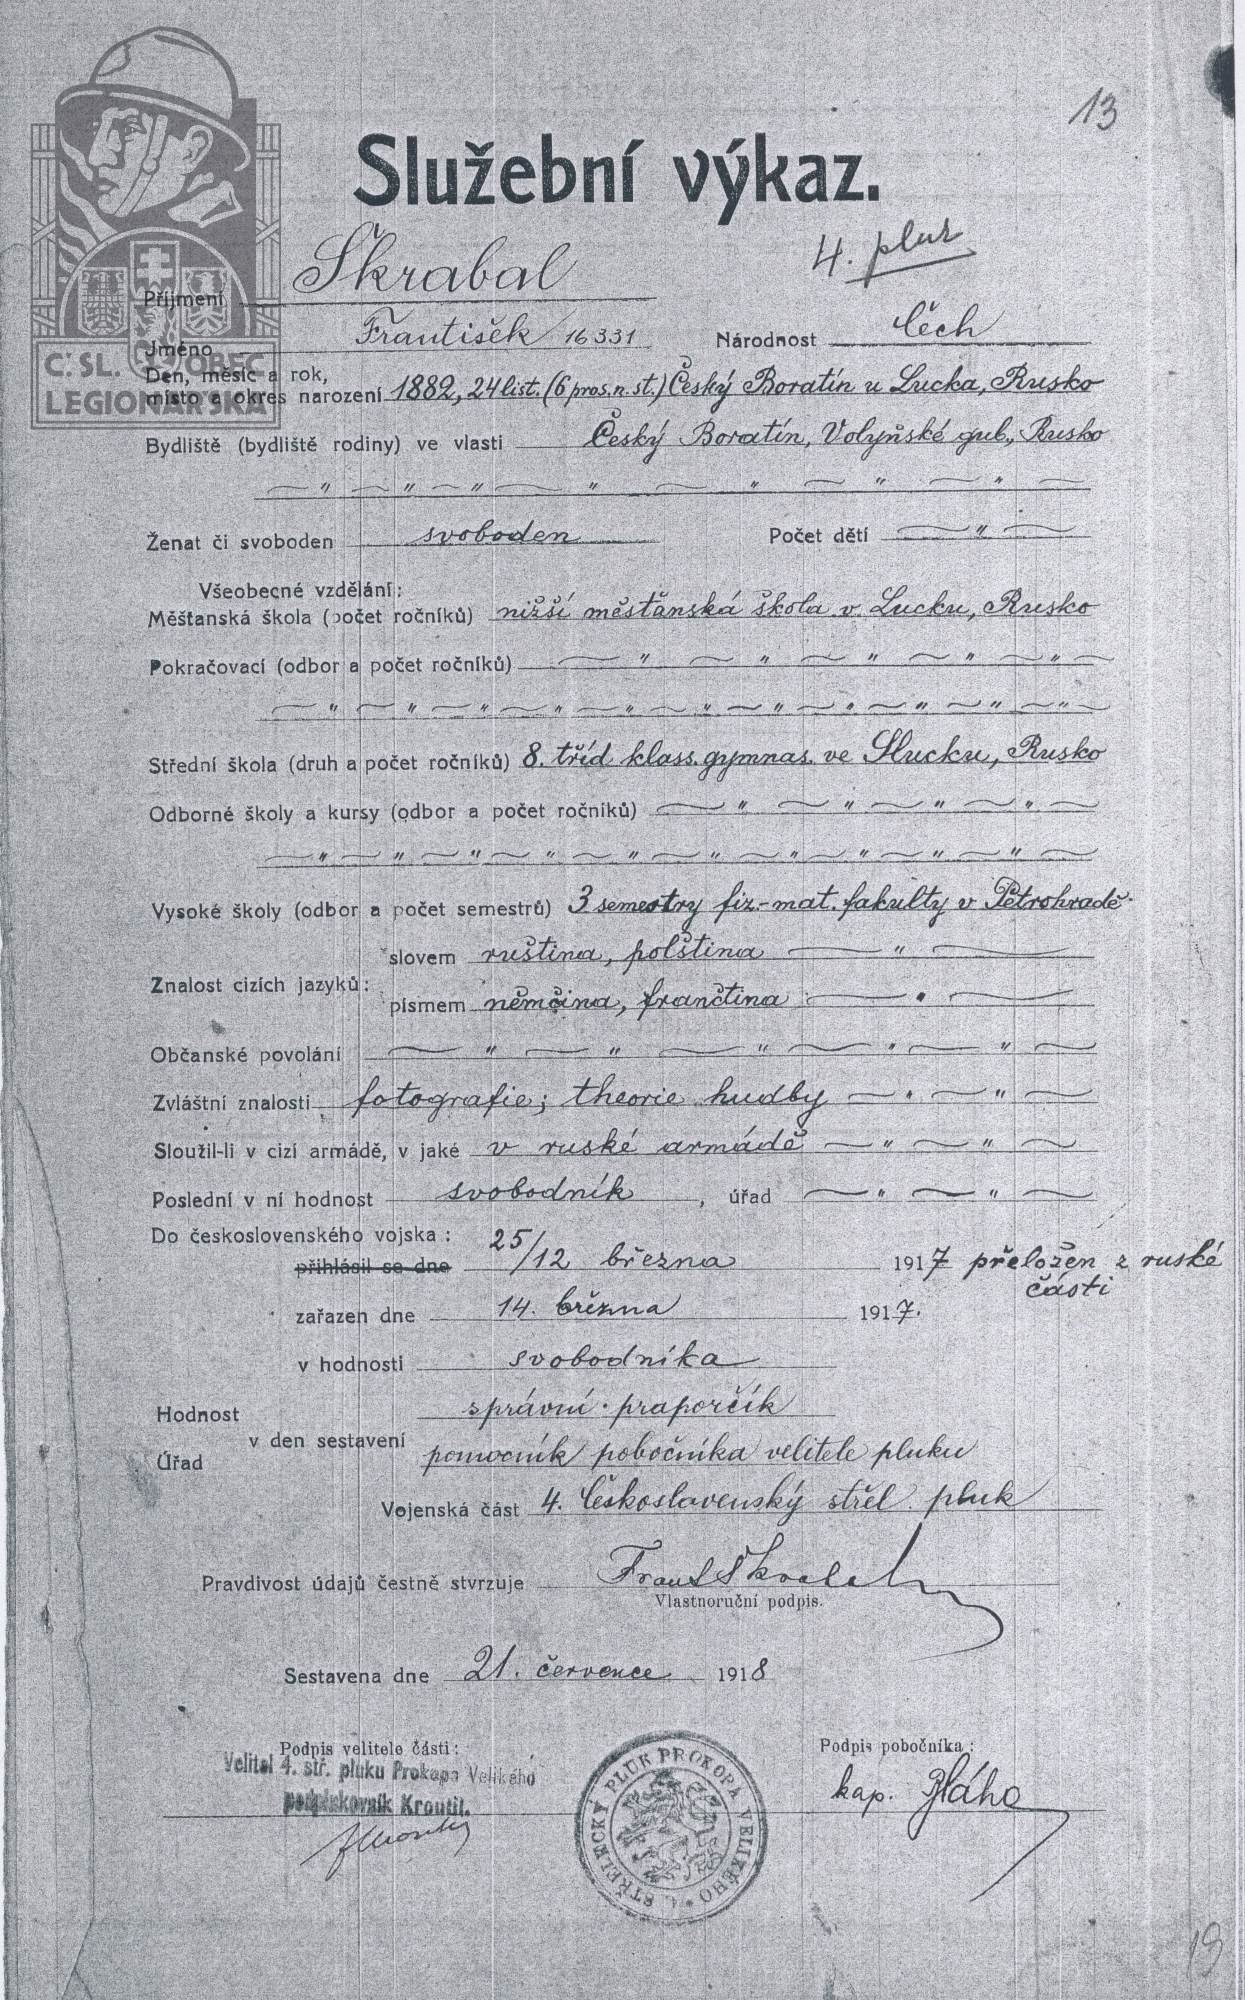 13
Služební výkaz.
4. pluk
Příjmení Škrabal
Jméno František 16331 Národnost Čech
Den, měsíc a rok,
místo a okres narození 1882, 24 list. (6 pros. n. st.) Český Boratín u Lucka, Rusko
Bydliště (bydliště rodiny) ve vlasti Český Boratín, Volyňské gub., Rusko
Ženat či svoboden svoboden Počet dětí
Všeobecné vzdělání:
Měšťanská škola (počet ročníků) nižší měšťanská škola v Lucku, Rusko
Pokračovací (odbor a počet ročníků)
Střední škola (druh a počet ročníků) 8. tříd klass. gymnas. ve Slucku, Rusko
Odborné školy a kursy (odbor a počet ročníků)
Vysoké školy (odbor a počet semestrů) 3 semestry fiz.-mat. fakulty v Petrohradě
Znalost cizích jazyků:
slovem ruština, polština
písmem němčina, frančtina
Občanské povolání
Zvláštní znalosti fotografie; theorie hudby
Sloužil-li v cizí armádě, v jaké v ruské armádě
Poslední v ní hodnost svobodník, úřad
Do československého vojska:
přihlásil se dne 25/12 března 1917 přeložen z ruské
části
zařazen dne 14. března 1917.
v hodnosti svobodníka
Hodnost správní praporčík
v den sestavení
Úřad pomocník pobočníka velitele pluku
Vojenská část 4. Československý střel. pluk
Pravdivost údajů čestně stvrzuje Frant Škrabal
Vlastnoruční podpis.
Sestavena dne 21. července 1918
Podpis velitele části:
Velitel 4. stř. pluku Prokopa Velikého
podplukovník Kroutil.
Podpis pobočníka:
kap. Bláha
4. STŘELECKÝ PLUK PROKOPA VELIKÉHO
19
Č.SL. OBEC
LEGIONÁŘSKÁ